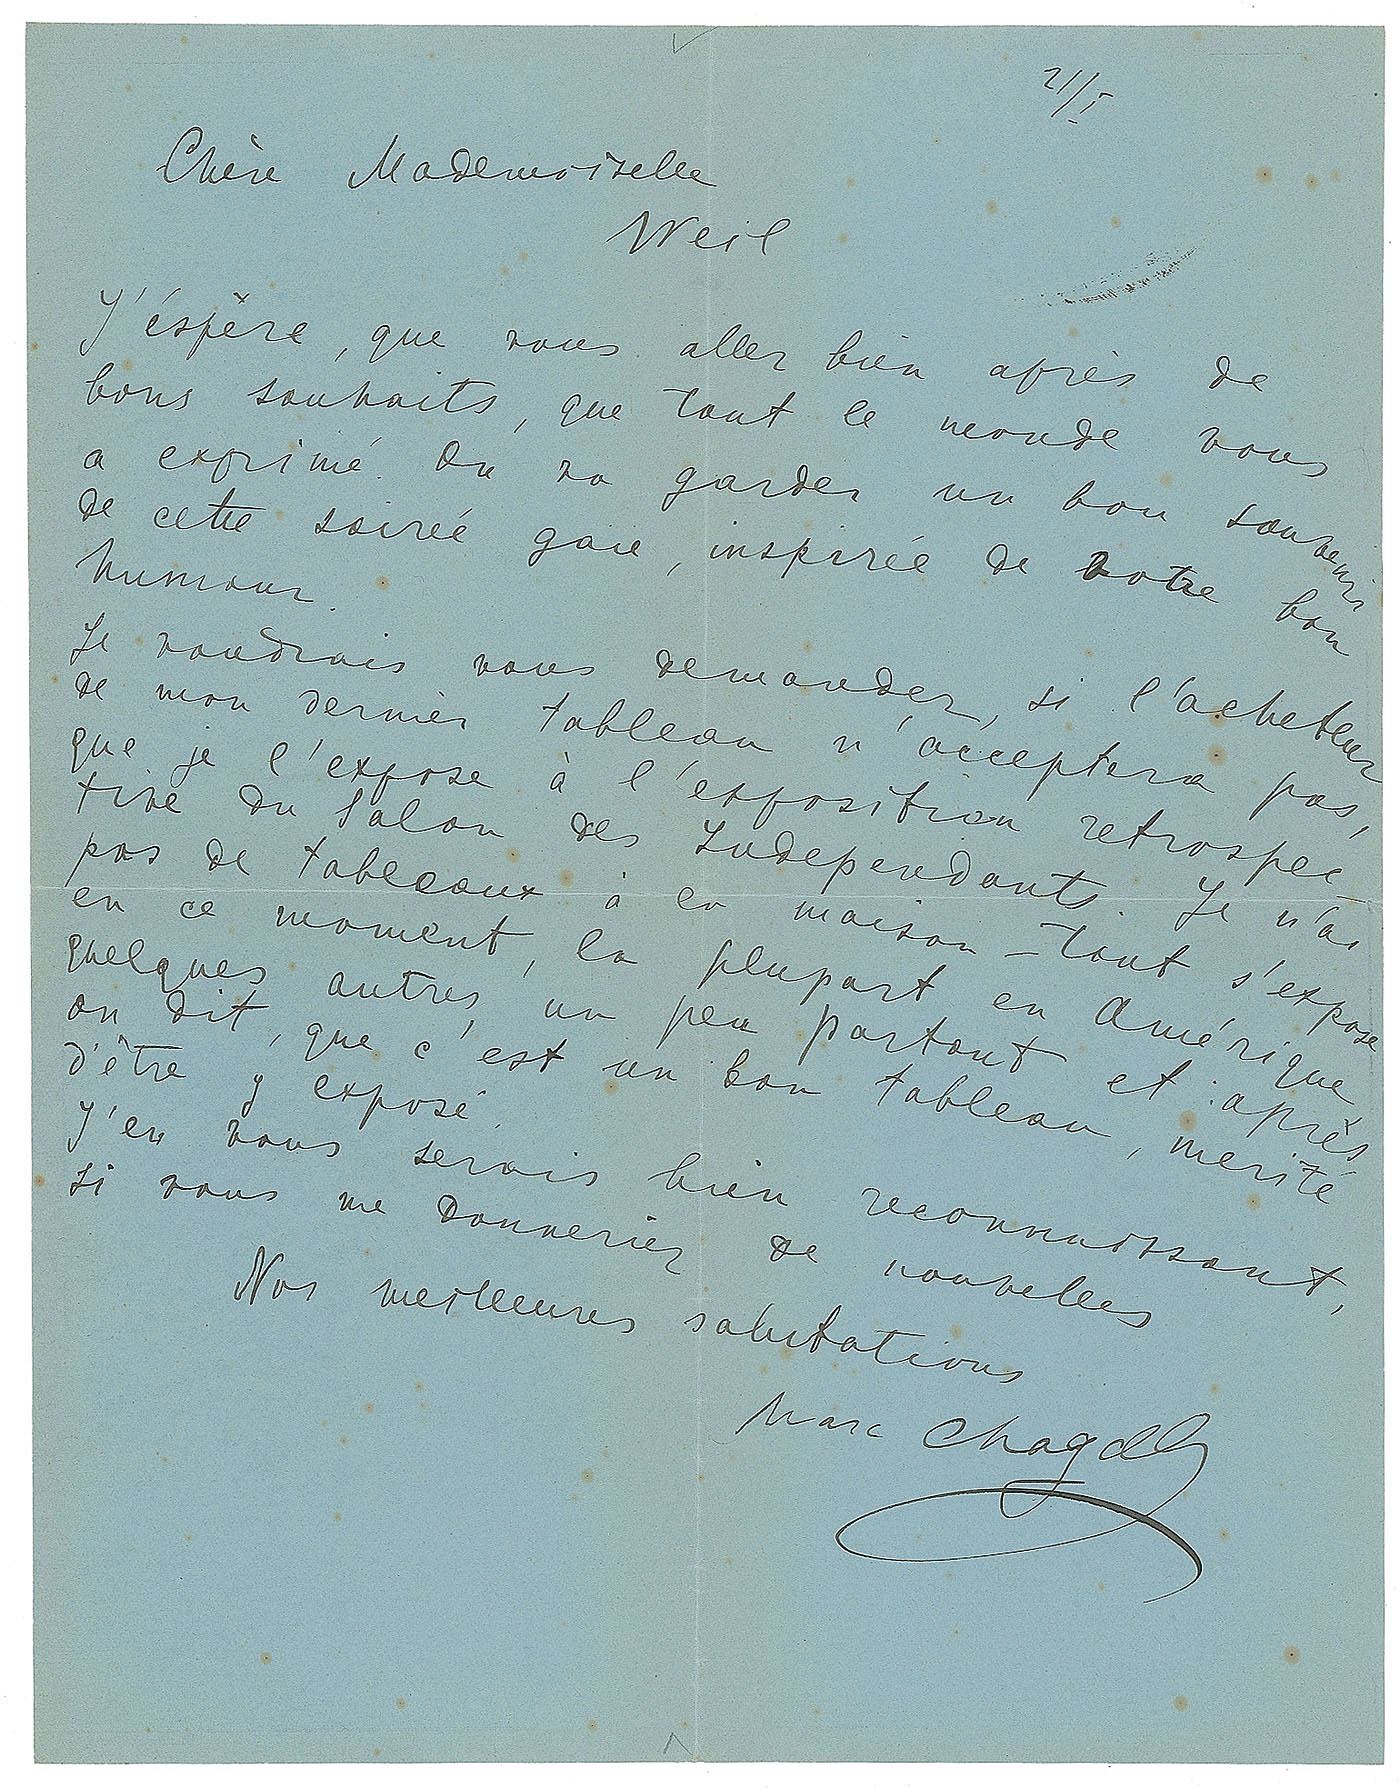 21/I
Chère Mademoiselle
Weil
J'éspère, que vous aller bien après de
bons souhaits, que tout le monde vous
a exprimé. On va garder un bon souvenir
de cette soireé gaie, inspirée de votre bon
humour.
Je voudrais vous demander, si l'acheteur
de mon dernier tableau n'acceptera pas,
que je l'expose à l'exposition retrospec-
tive du Salon des Independants. Je n'ai
pas de tableaux à la maison – tout s'expose
en ce moment, la plupart en Amérique
quelques autres, un peu partout et après
on dit, que c'est un bon tableau, merité
d'être y exposé.
J'en vous serais bien reconnaissant,
si vous me donneriez de nouvelles
Nos meilleures salutations
Marc Chagall